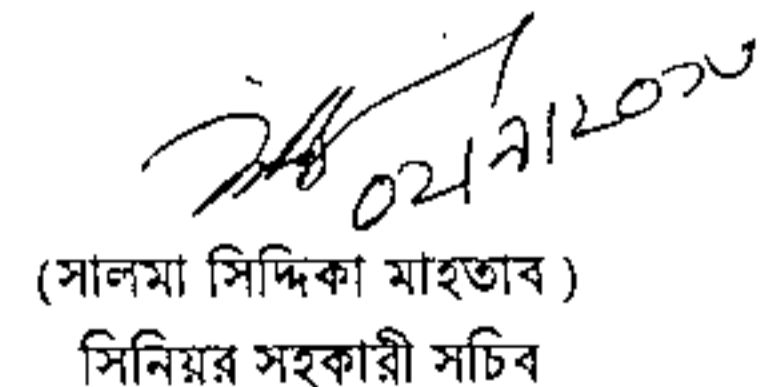 (সালমা সিদ্দিকা মাহতাব )
সিনিয়র সহকারী সচিব